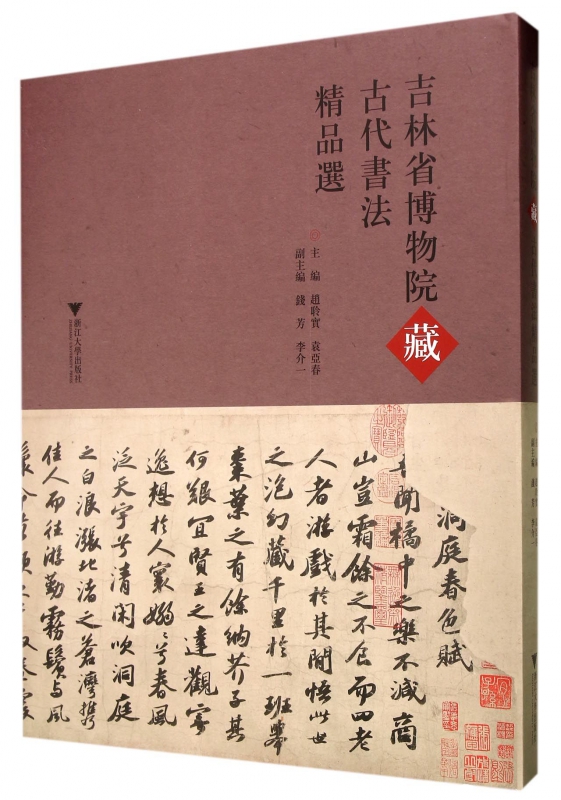 吉林省博物院藏
古代書法
精品選
主編 趙聆實 袁亞春
副主編 錢芳 李介一
浙江大學出版社
洞庭春色賦
聞橘中之樂不減商
山豈霜餘之不食而四老
人者游戲於其間悟此世
之泡幻藏千里於一班舉
棗葉之有餘納芥子其
何艱宜賢王之達觀寄
逸想於人寰嫋嫋兮春風
泛天宇兮清閑吹洞庭
之白浪漲北渚之蒼灣攜
佳人而往游勤霧鬢與風